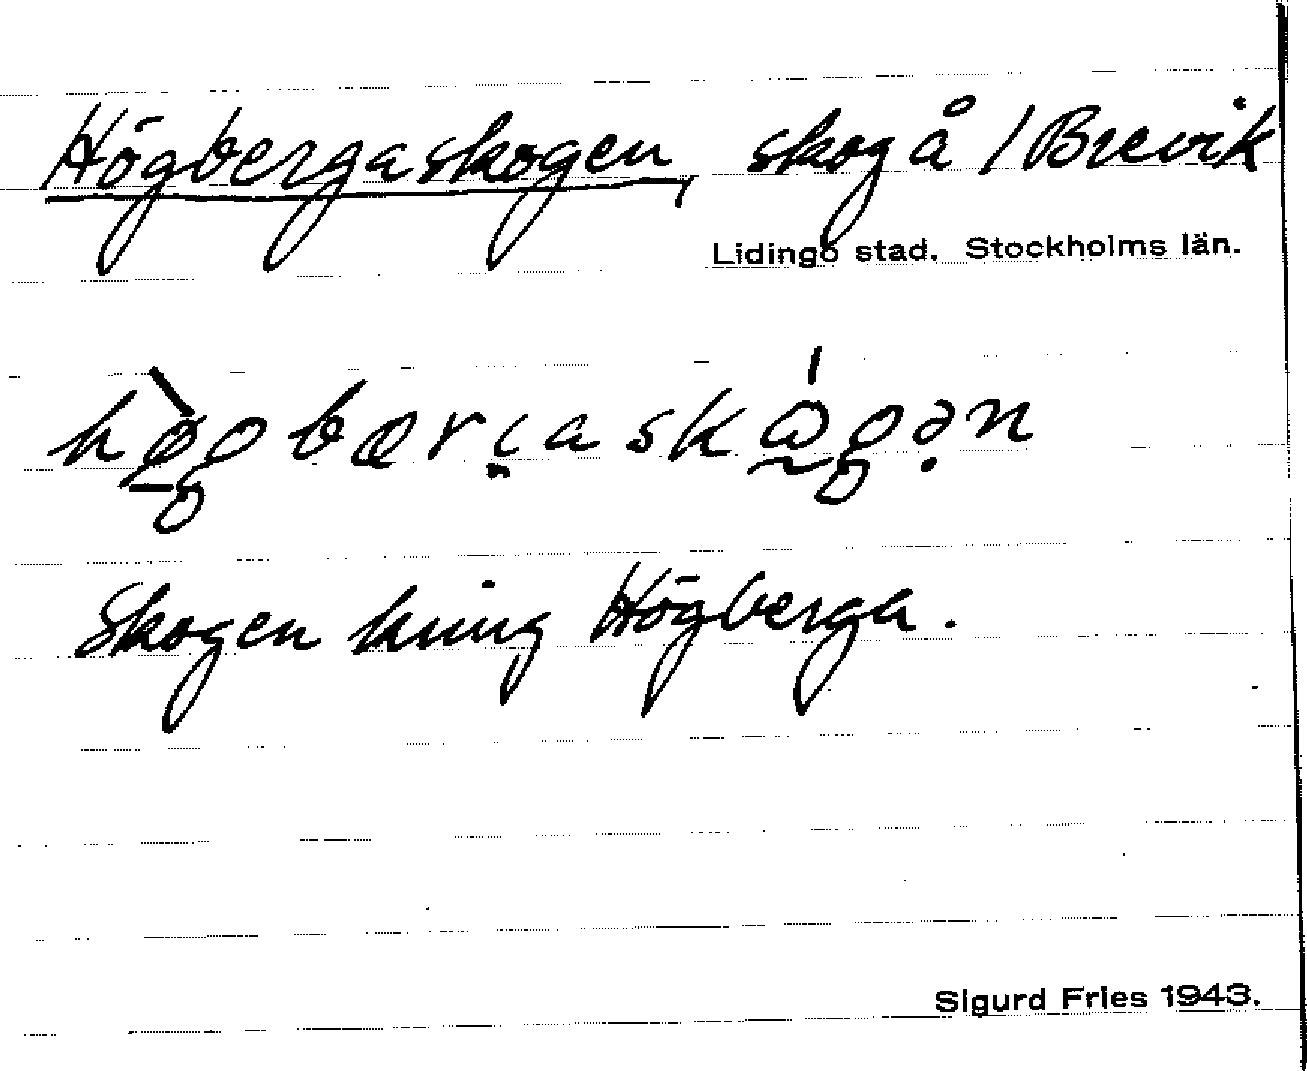 Högbergaskogen, skog å 1 Brevik
Lidingö stad. Stockholms län.
Skogen kring Högberga.
Sigurd Fries 1943.